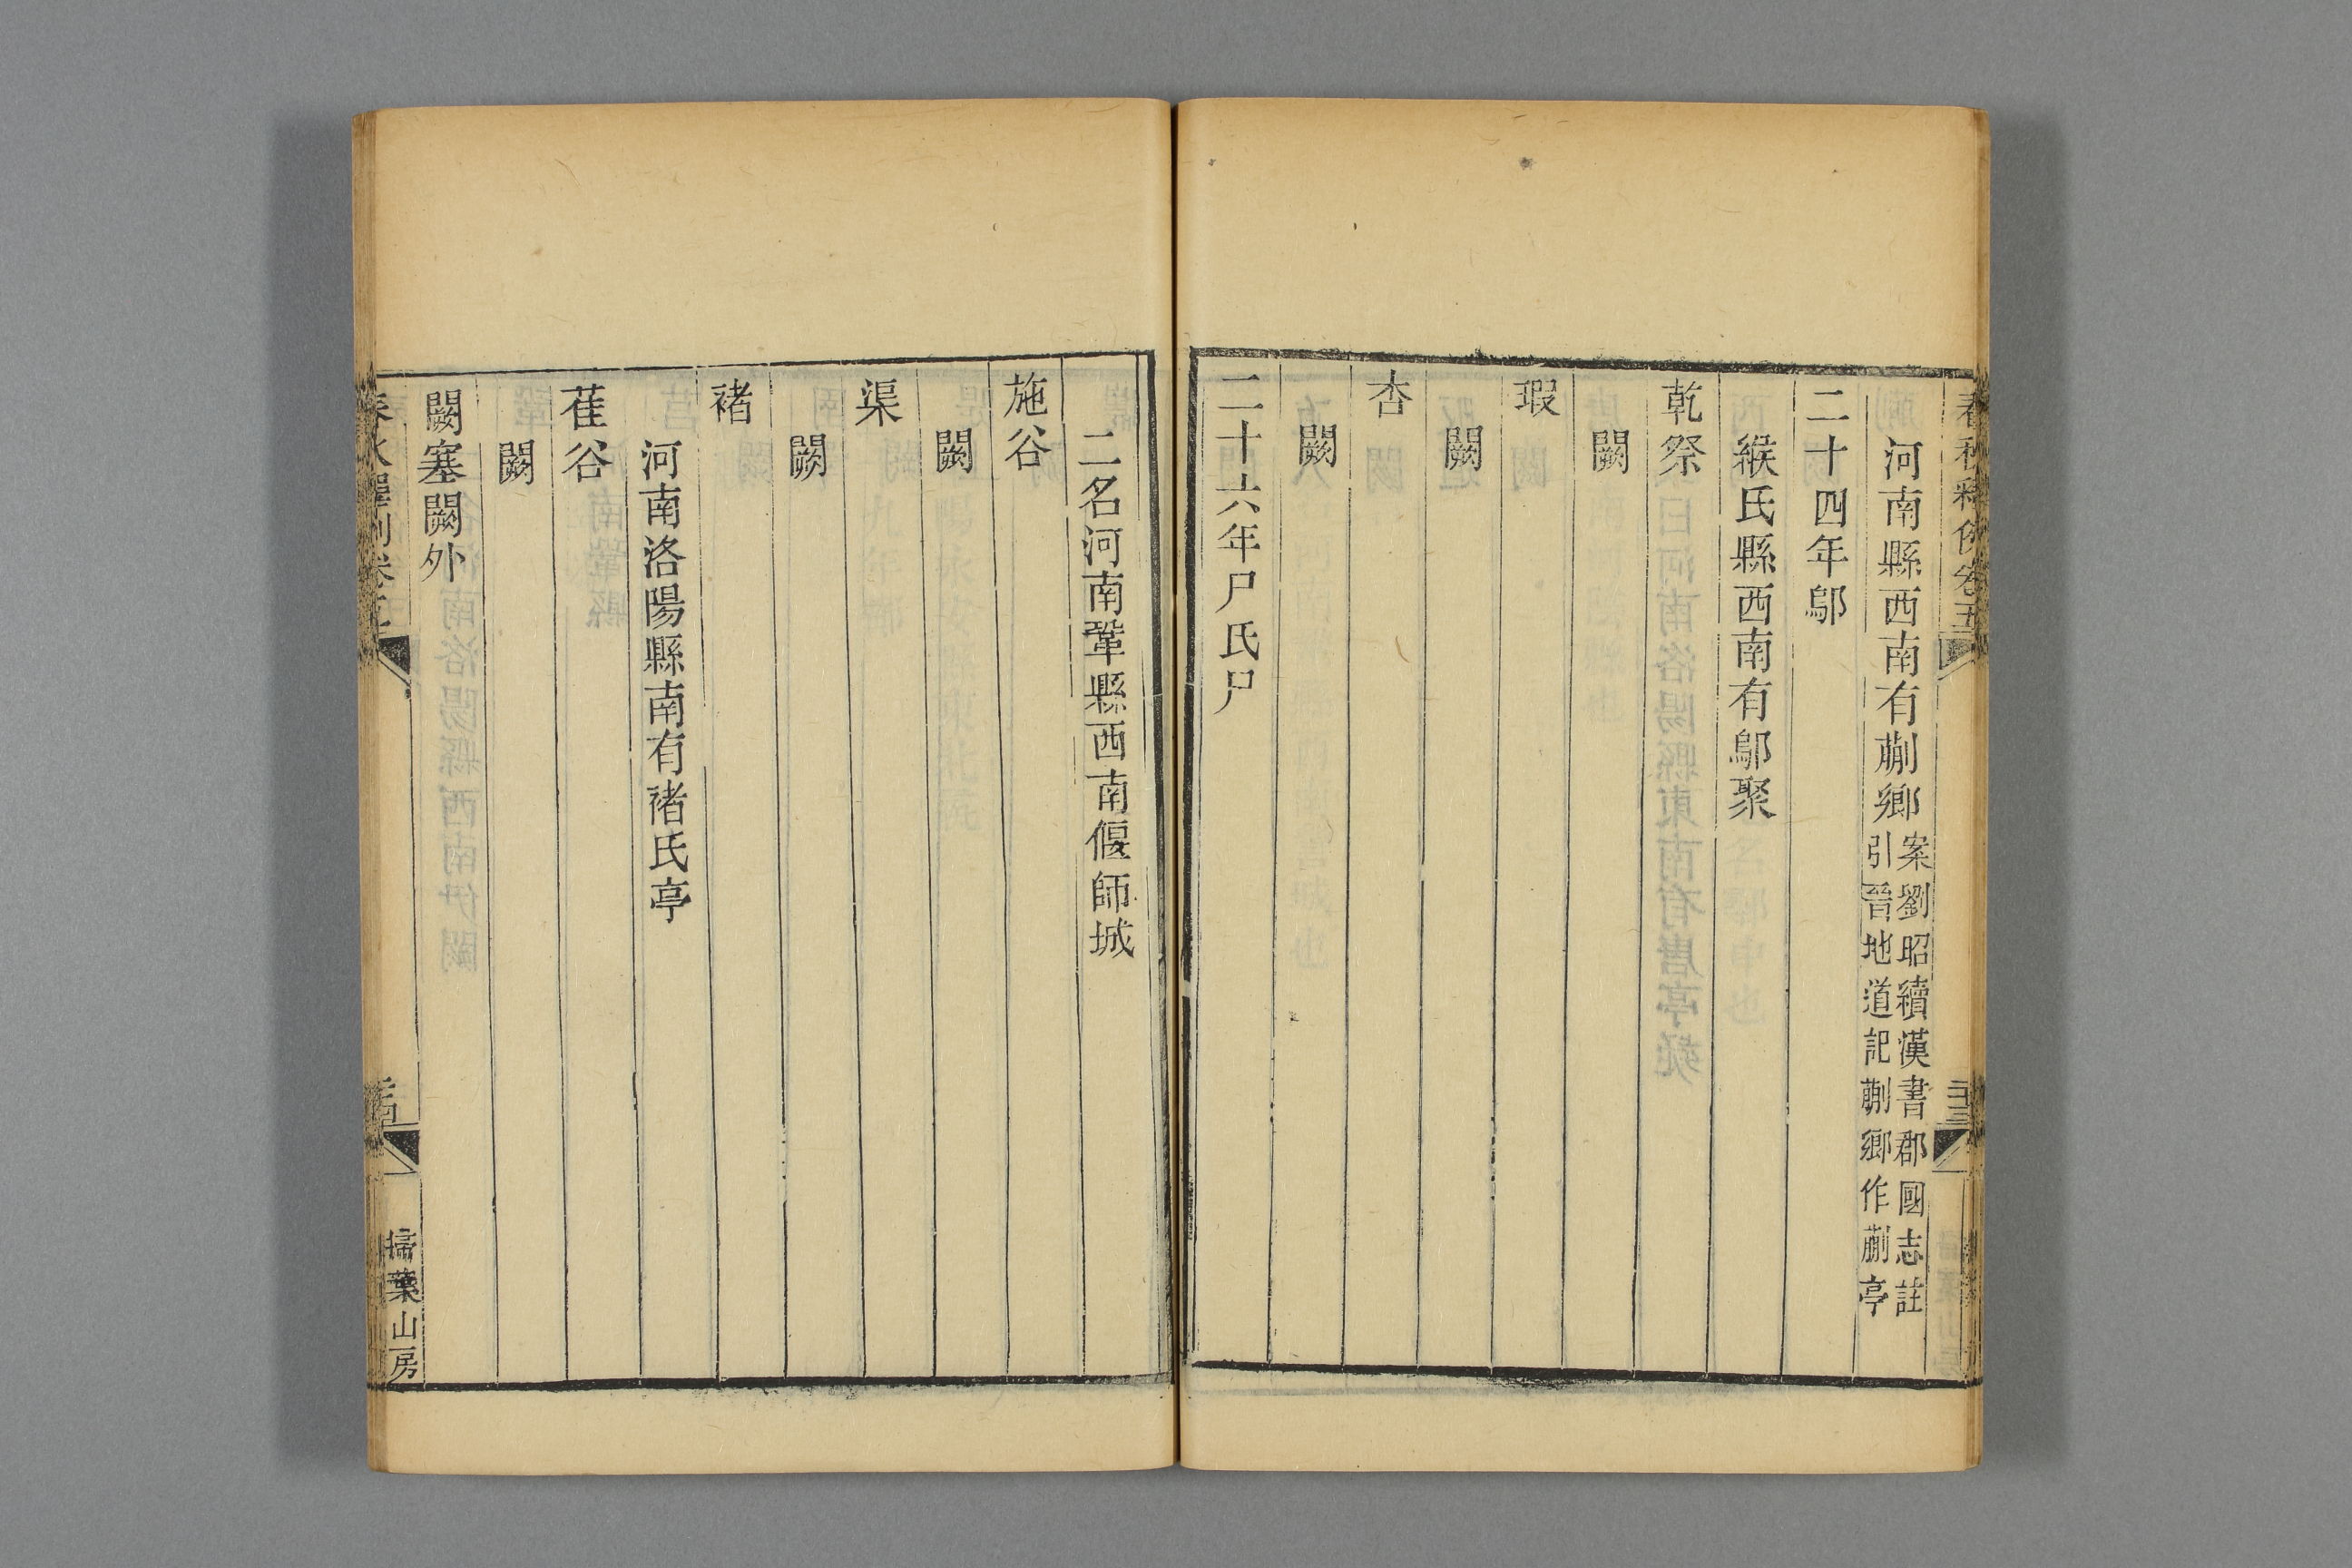 春秋釋例卷五
河南縣西南有蒯鄉案劉昭續漢書郡國志註
引晉地道記蒯鄉作蒯亭
二十四年鄔
緱氏縣西南有鄔聚
乾祭
闕
瑕
闕
杏
闕
二十六年尸氏尸
二名河南鞏縣西南偃師城
施谷
闕
渠
闕
褚
河南洛陽縣南有褚氏亭
萑谷
闕
闕塞闕外
掃葉山房